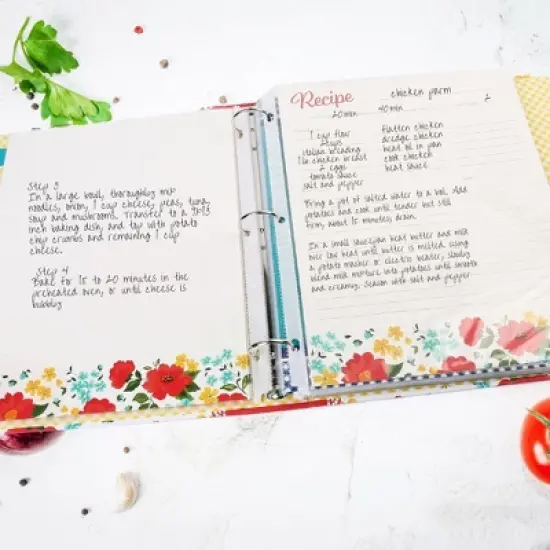 Step 3
In a large bowl, thoroughly mix
noodles, onion, 1 cup cheese, peas, tuna,
soup and mushrooms. Transfer to a 9x13
inch baking dish, and top with potato
chip crumbs and remaining 1 cup
cheese.
Step 4
Bake for 15 to 20 minutes in the
preheated oven, or until cheese is
bubbly
Recipe chicken parm
20min 40min 2
1 cup flour
2cups
italian breading
1 lb chicken breast
2 eggs
tomato sauce
salt and pepper
flatten chicken
dredge chicken
heat oil in pan
cook chicken
heat sauce
Bring a pot of salted water to a boil. Add
potatoes and cook until tender but still
firm, about 15 minutes; drain.
In a small saucepan heat butter and milk
over low heat until butter is melted. using
a potato masher or electric beater, slowly
blend milk mixture into potatoes until smooth
and creamy. Season with salt and pepper